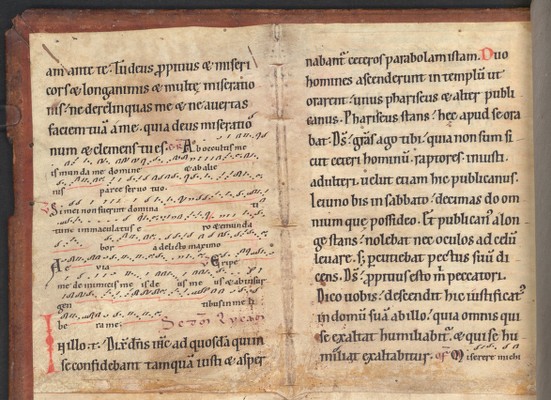 am ante te. Tu deus ꝓpitius & miseri
cors & longanimis & multę miseratio
nis. ne derelinquas me & ne auertas
faciem tuā a me. quia deus miseratio
num & clemens tu es. Ab occultis me
is munda me domine & ab alie
nis parce seruo tuo.
Si mei non fuerint domina ti
tunc immaculatus e ro & emunda
bor a delicto maximo
via Eripe
me de inimicis me is de us me us & ab insur
gen tibus in me li
be ra me.
In illo t̄. Dix̄ dn̄s ih̄c ad quosdā qui in
se confidebant tamquā iusti & asper
nabant᷑ ceteros parabolam istam. Duo
homines ascenderunt in templū ut
orarent. unus phariseus & alter publi
canus. Phariseus stans. hec apud se ora
bat. Ds̄. grās ago tibi. quia non sum si
cut ceteri hominū. raptores. iniusti.
adulteri. uelut etiam hic publicanus.
Ieiuno bis in sabbato. decimas do om
nium que possideo. Et publican᷑ a lon
ge stans. nolebat nec oculos ad celū
leuare. S; pcutiebat pectus suū di
cens. Ds̄. ꝓpitius esto m̄ peccatori.
Dico uobis. descendit hic iustificat᷑
in domū suā ab illo. quia omnis qui
se exaltat humiliabit᷑. & qui se hu
miliat exaltabitur. Miserere michi